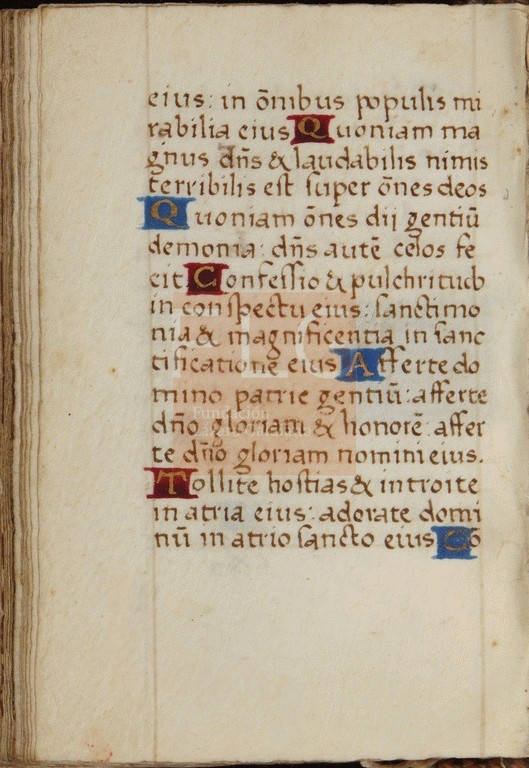 eius: in õnibus populis mi
rabilia eius Quoniam ma
gnus dñs & laudabilis nimis
terribilis est super õnes deos
Quoniam õnes dij gentiũ
demonia: dñs autẽ celos fe
cit. Confessio & pulchritudo
in conspectu eius: sanctimo
nia & magnificentia in sanc
tificatione eius Afferte do
mino patrie gentiũ: afferte
dño gloriam & honorẽ: affer
te dño gloriam nomini eius.
Tollite hostias & introite
in atria eius: adorate domi
nũ in atrio sancto eius Cõ
Fundación